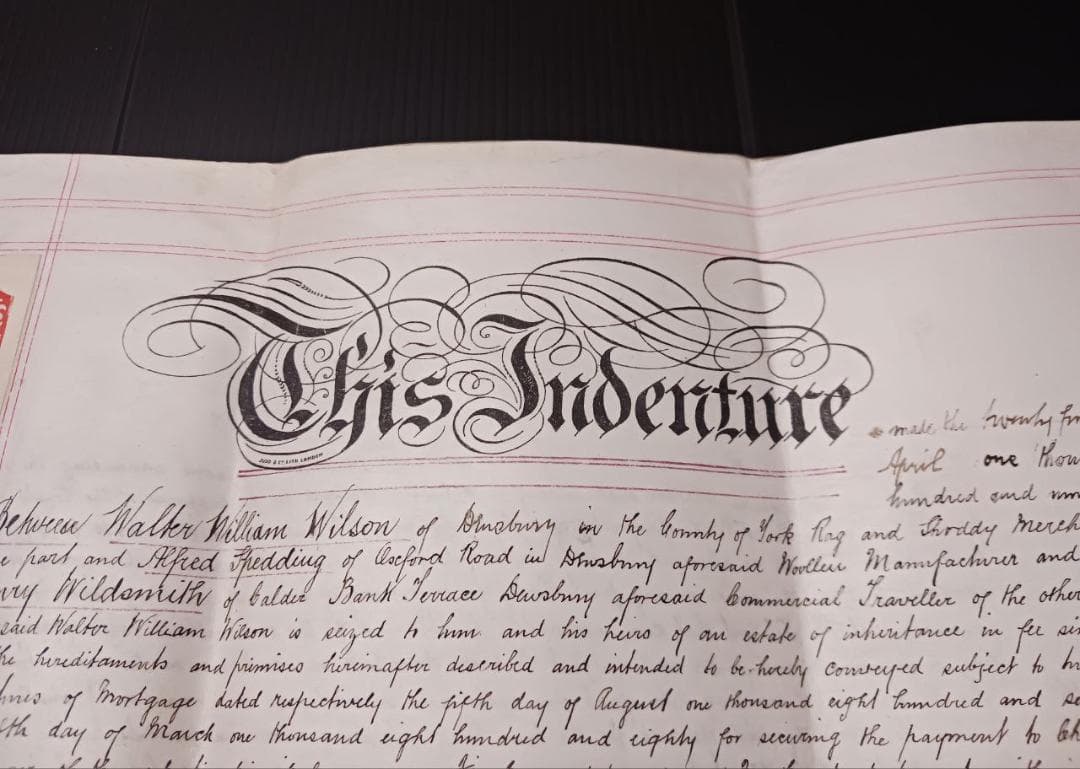 This Indenture
made the twenty
April one thou
hundred and
Between Walter William Wilson of Dewsbury in the County of York Rag and Shoddy Merch
part and Alfred Spedding of Oxford Road in Dewsbury aforesaid Woollen Manufacturer and
Wildsmith of Calder Bank Terrace Dewsbury aforesaid Commercial Traveller of the other
said Walter William Wilson is seized to him and his heirs of an estate of inheritance in fee
hereditaments and premises hereinafter described and intended to be hereby conveyed subject to
of Mortgage dated respectively the fifth day of August one thousand eight hundred and
day of March one thousand eight hundred and eighty for securing the payment to